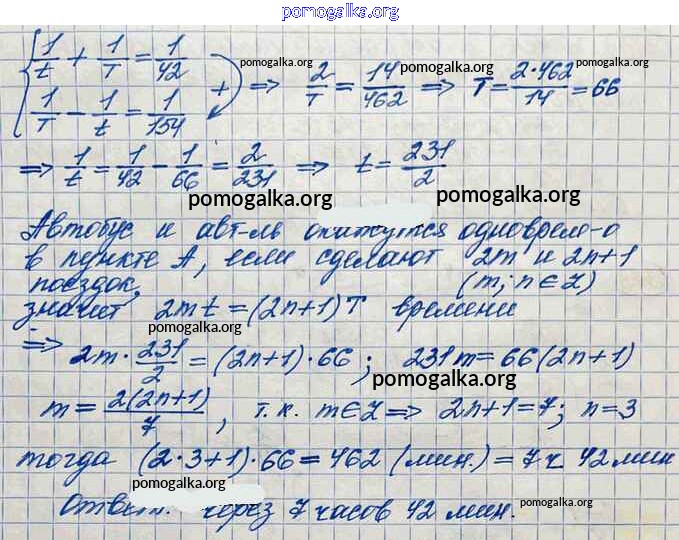 pomogalka.org
1/t + 1/T = 1/42 pomogalka.org
1/T − 1/t = 1/154 + => 2/T = 14/462 pomogalka.org => T = 2·462/14 = 66 pomogalka.org
=> 1/t = 1/42 − 1/66 = 2/231 => t = 231/2
pomogalka.org pomogalka.org
Автобус и авт-ль окажутся одноврем-о
в пункте А, если сделают 2m и 2n+1
поездок, (m; n ∈ Z)
значит 2mt = (2n+1)T времени
pomogalka.org
=> 2m · 231/2 = (2n+1)·66; 231m = 66(2n+1)
pomogalka.org
m = 2(2n+1)/7, т.к. m∈Z => 2n+1=7; n=3
pomogalka.org
тогда (2·3+1)·66 = 462 (мин.) = 7ч 42 мин
pomogalka.org
Ответ: через 7 часов 42 мин. pomogalka.org